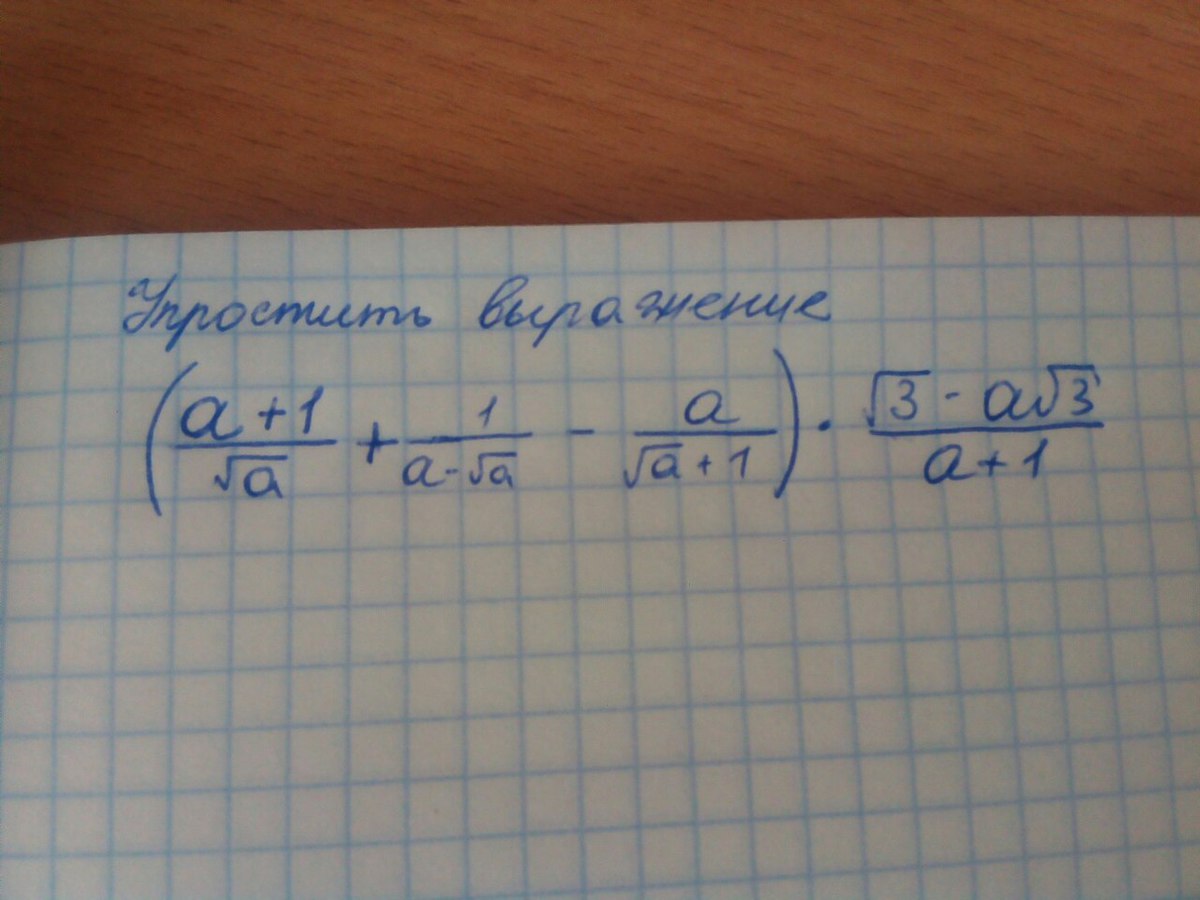 Упростить выражение
(\frac{a+1}{\sqrt{a}} + \frac{1}{a-\sqrt{a}} - \frac{a}{\sqrt{a}+1}) \cdot \frac{\sqrt{3}-a\sqrt{3}}{a+1}